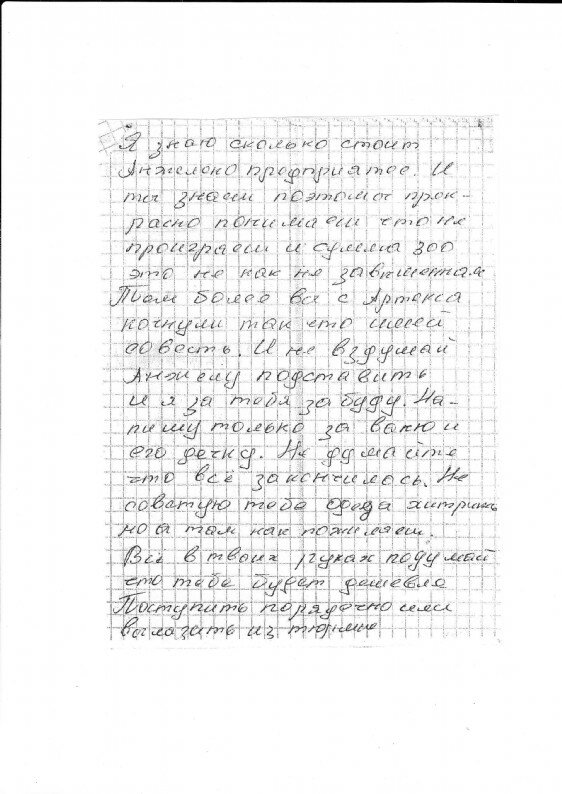 Я знаю сколько стоит
Анжелено предприятее. И
ты знаеш поэтому прек-
расно понимаеш что не
проиграеш и сумма 300
это не как не завышенная
Тем более вы с Артекса
качнули так что имей
совесть. И не вздумай
Анжелу подставить
и я за тебя забуду. На-
пишу только за Ваню и
его дечку. Не думайте
что всё закончилось. Не
советую тебе хитрить
но а там как пожелаеш.
Всё в твоих руках подумай
что тебе будет дешевле
Поступить порядочно или
вылазить из тюрьмы